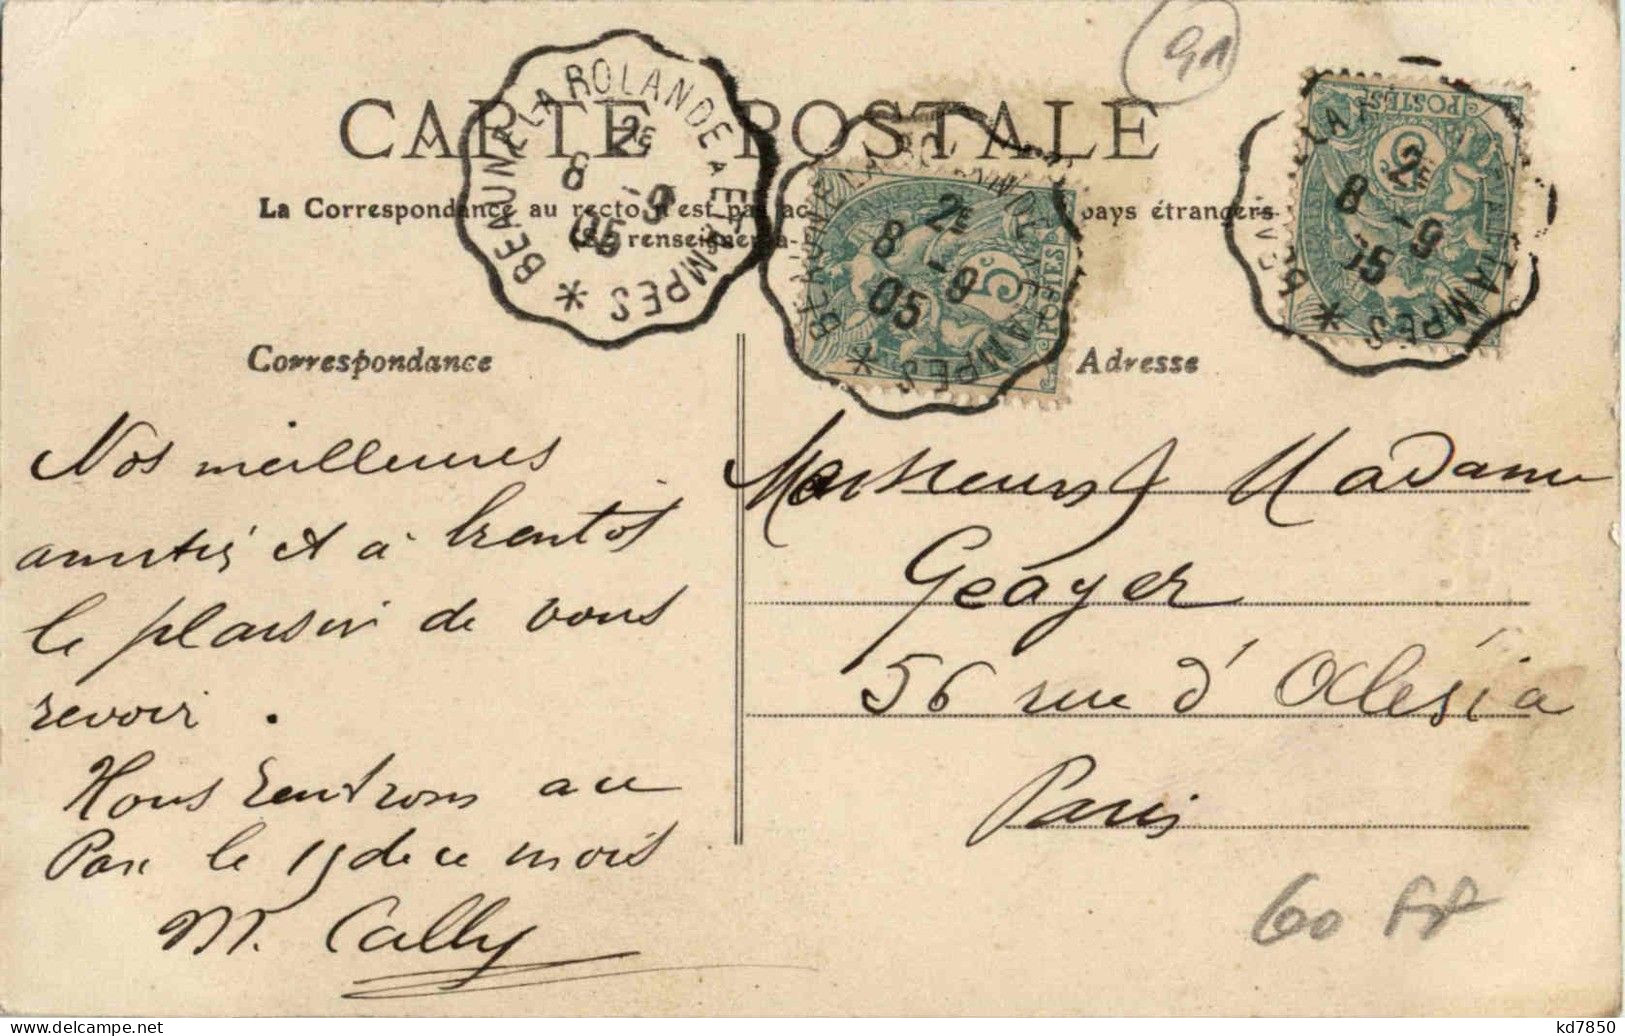 91
CARTE POSTALE
La Correspondance au recto n'est pas ac pays étrangers
(Se renseigner à
BEAUNE LA ROLANDE A ETAMPES *
2E
8 -9
05
BEAUNE LA ROLANDE A ETAMPES *
2E
8 -9
05
5
POSTES
BEAUNE LA ETAMPES *
2E
8 -9
05
5
POSTES
Correspondance
Adresse
Nos meilleures
amitiés et à bientôt
le plaisir de vous
revoir.
Nous rentrons au
le 15 de ce mois
M. Cally
Monsieur et Madame
Geayer
56 rue d'Alésia
Paris
60 FF
kd7850